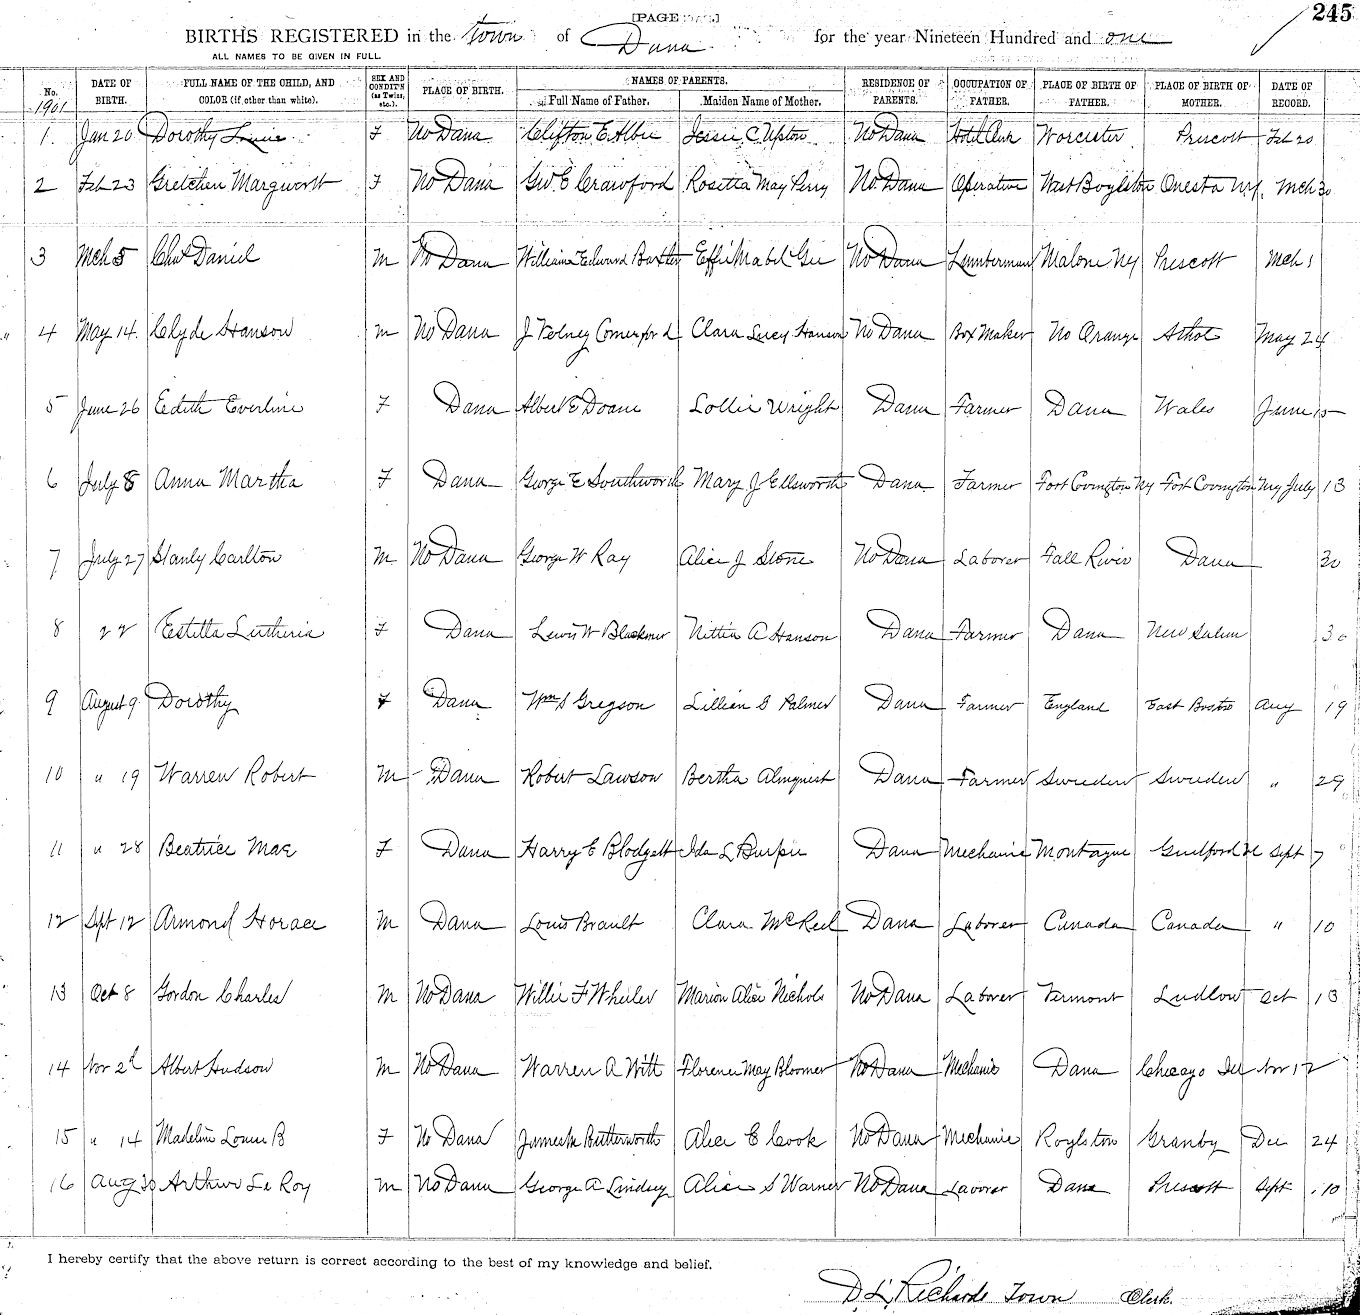 [PAGE ]
245
BIRTHS REGISTERED in the town of Dana for the year Nineteen Hundred and one
ALL NAMES TO BE GIVEN IN FULL.
No. DATE OF BIRTH. FULL NAME OF THE CHILD, AND COLOR (if other than white). SEX AND CONDIT'N (as Twins, etc.). PLACE OF BIRTH. NAMES OF PARENTS. Full Name of Father. Maiden Name of Mother. RESIDENCE OF PARENTS. OCCUPATION OF FATHER. PLACE OF BIRTH OF FATHER. PLACE OF BIRTH OF MOTHER. DATE OF RECORD.
1901
1. Jan 20 Dorothy Louise F No Dana Clifton E Albee Jessie C Upton No Dana Hotel Clerk Worcester Prescott Feb 20
2 Feb 23 Gretchen F No Dana Geo E Crawford Rosetta May Perry No Dana Operative West Boylston NY. Mch 30
3 Mch 5 Chas Daniel M No Dana William Edward Effie Mabel Gee No Dana Lumberman Malone NY Prescott Mch 1
4 May 14. Clyde Hanson M No Dana J Volney Comerford Clara Lucy Hanson No Dana Box Maker No Orange Athol May 24
5 June 26 Edith Everline F Dana Albert E Doane Lollie Wright Dana Farmer Dana Wales June 15
6 July 8 Anna Martha F Dana George E Southworth Mary J Ellsworth Dana. Farmer Fort Covington NY Fort Covington NY July 13
7 July 27 Stanly Carlton M No Dana George W Ray Alice J Stone No Dana Laborer Fall River Dana 30
8 22 Estella Lutheria F Dana Lewis W Blackmer Nettie A Hanson Dana Farmer Dana New Salem 30
9 August 9 Dorothy F Dana Wm S Gregson Lillian G Palmer Dana Farmer England East Boston Aug 19
10 " 19 Warren Robert M Dana Robert Lawson Bertha Almquist Dana Farmer Sweden Sweden " 29
11 " 28 Beatrice Mae F Dana Harry E Blodgett Ida L Burpee Dana Mechanic Montague Guilford Vt Sept 7
12 Sept 12 Armond Horace M Dana Louis Brault Clara McReel Dana Laborer Canada Canada " 10
13 Oct 8 Gordon Charles M No Dana Willie F Wheeler Marion Alice Nichols No Dana Laborer Vermont Ludlow Oct 13
14 Nov 2d Albert Hudson M No Dana Warren A Witt Florence May Bloomer No Dana Mechanic Dana Chicago Ill Nov 12
15 " 14 Madeline Louise B F No Dana James M Butterworth Alice E Cook No Dana Mechanic Royalston Granby Dec 24
16 Aug 30 Arthur Le Roy M No Dana George A Lindsey Alice S Warner No Dana Laborer Dana Prescott Sept 10
I hereby certify that the above return is correct according to the best of my knowledge and belief.
D. L. Richards Town Clerk.